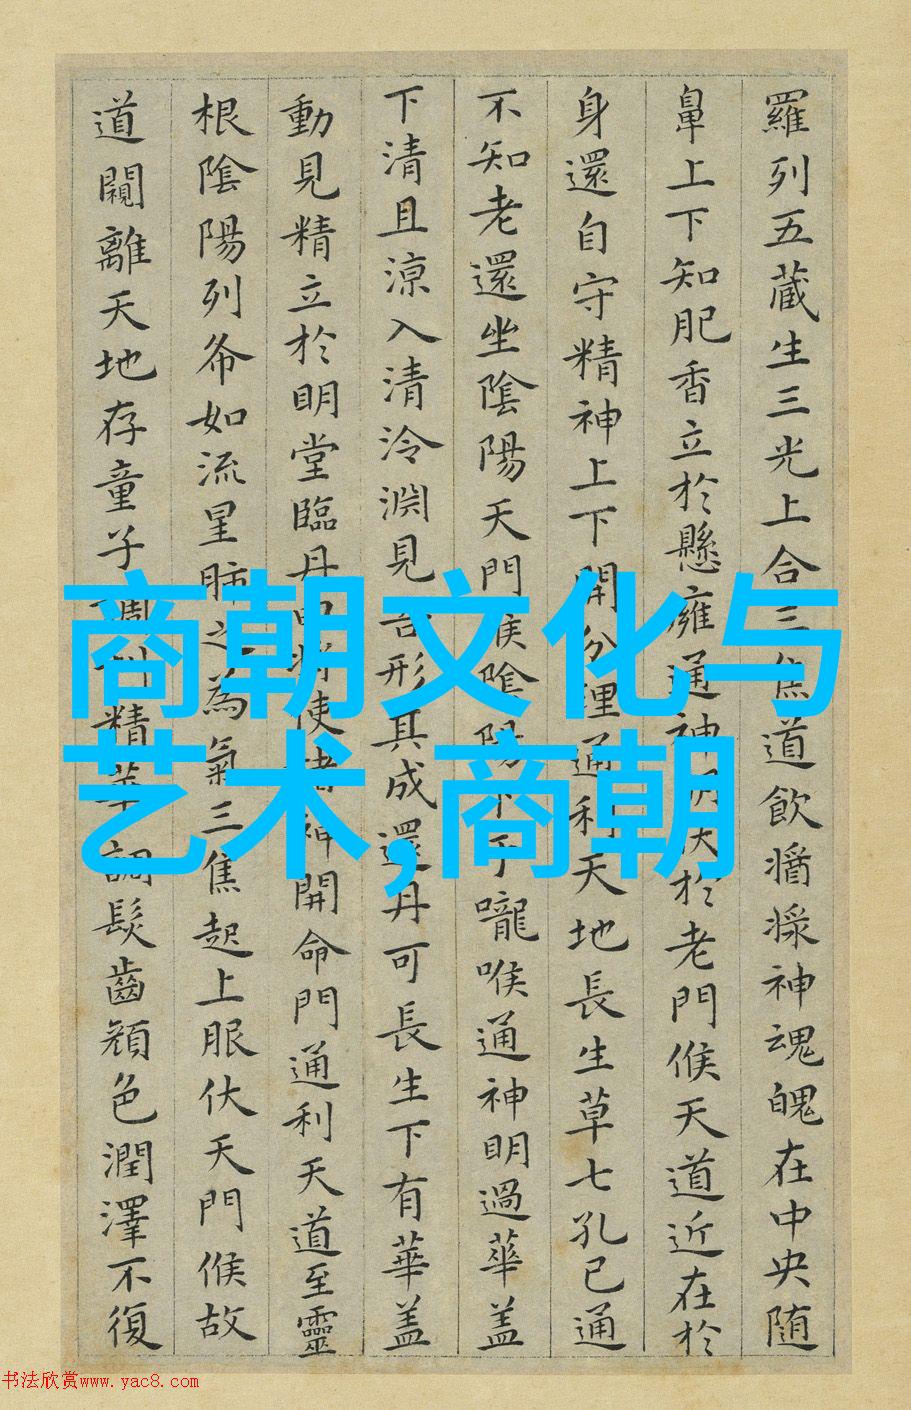 羅列五藏生三光上合三焦道飲醬漿神魂魄在中央随
鼻上下知肥香立於懸癰通神明伏於老門候天道近在於
身還自守精神上下開分理通利天地長生草七孔已通
不知老還坐陰陽天門候陰陽下于嚨喉通神明過華盖
下清且涼入清泠淵見吾形其成還丹可長生下有華盖
動見精立於明堂臨丹田將使諸神開命門通利天道至靈
根陰陽列布如流星肺之為氣三焦起上服伏天門候故
道闚離天地存童子調利精華調髮齒顔色潤澤不復
商朝文化与
艺术,商朝
书法欣赏www.yac8.com